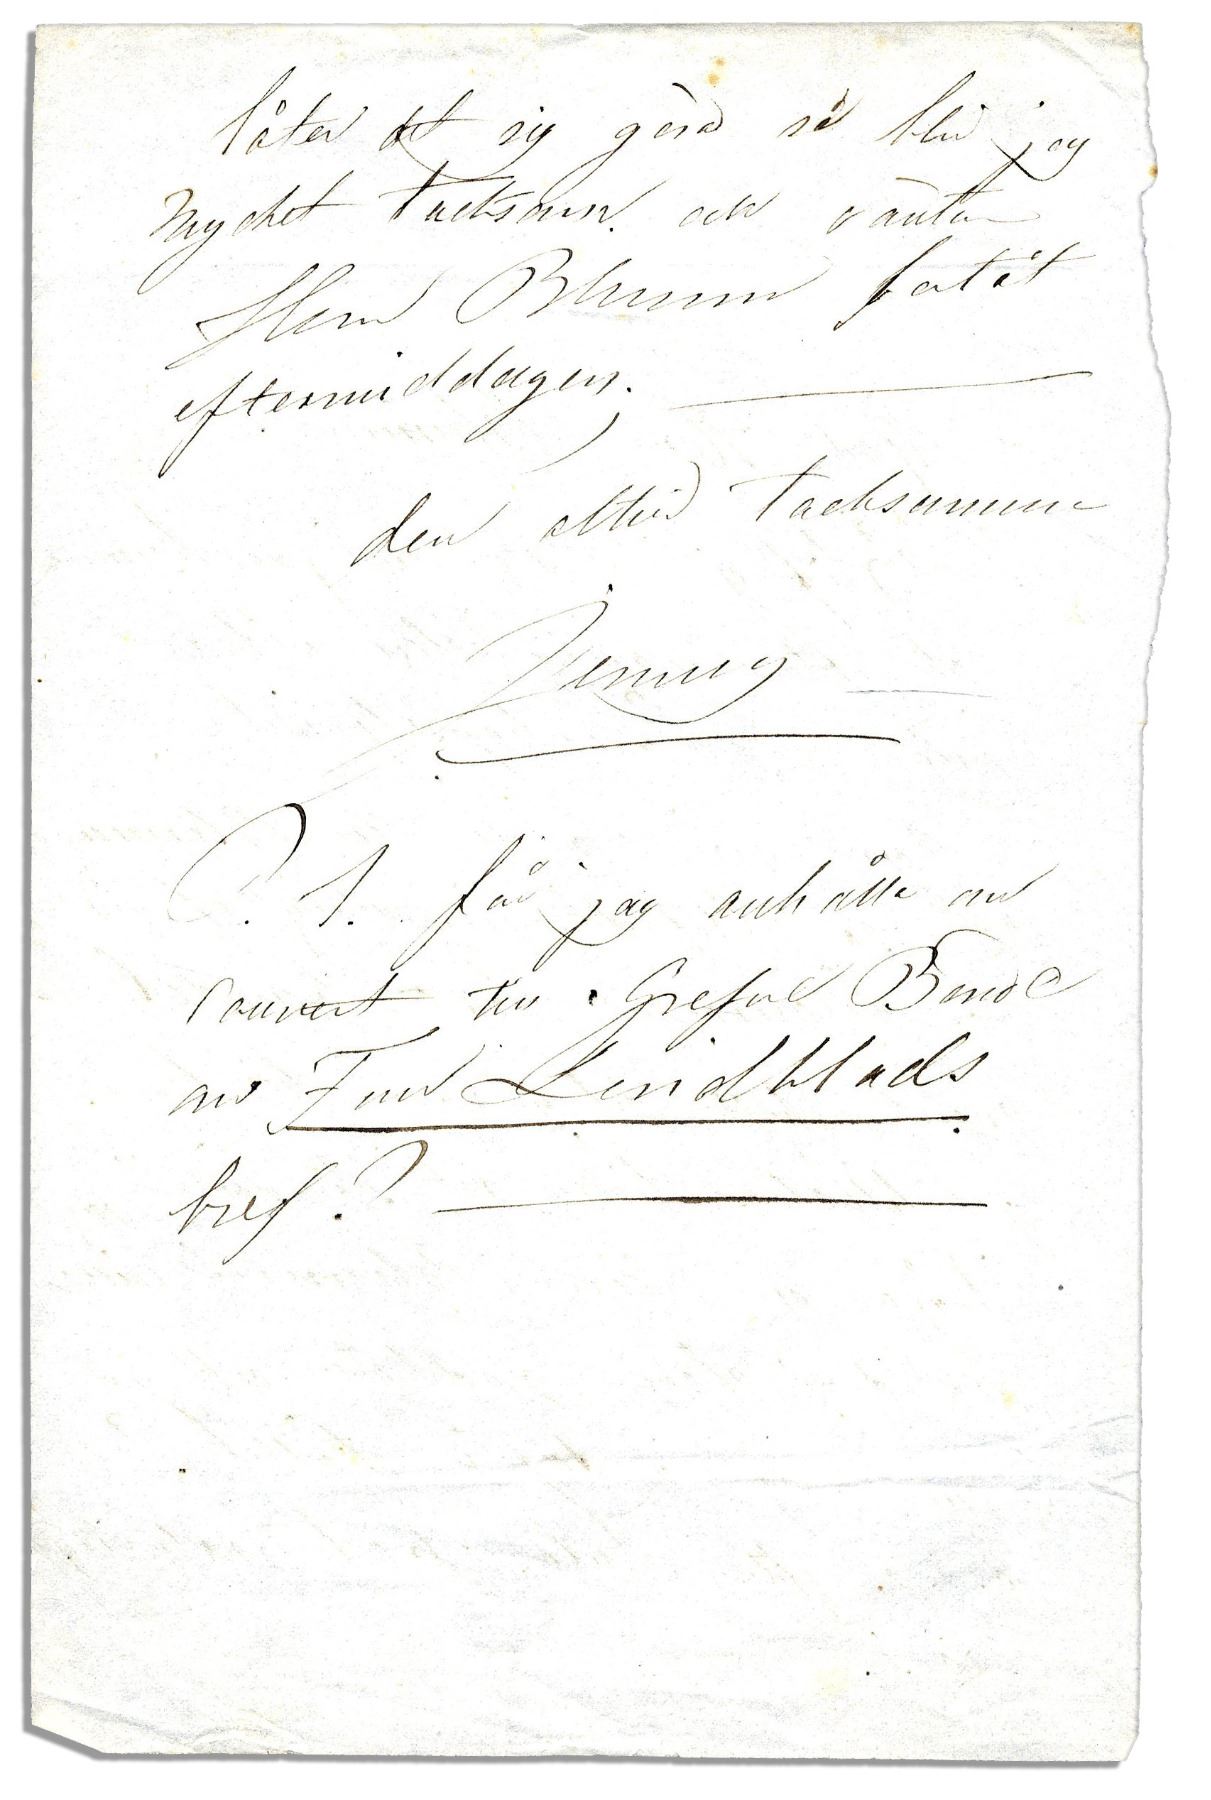 låter det sig göra så blir jag
mycket tacksam och väntar
Herr Blumm
eftermiddagen.
den alltid tacksamme
Jenny
P. S. får jag anhålla om
couvert till Grefve Bonde
om Fru Lindblads
bref?